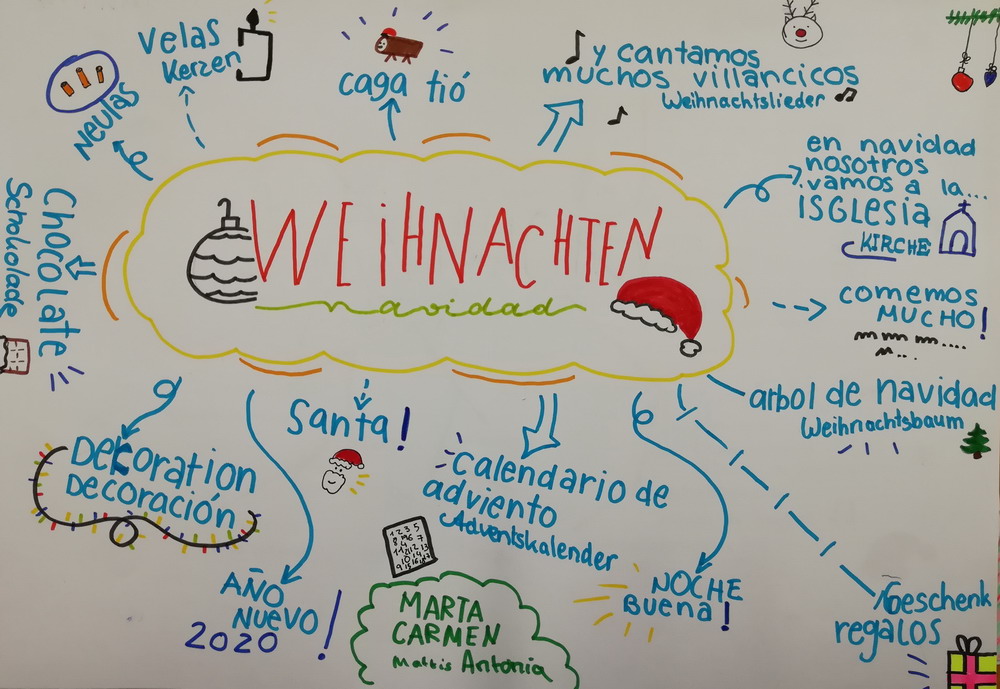 WEiHNACHTEN
navidad
velas
Kerzen
caga tió
y cantamos
muchos villancicos
Weihnachtslieder
en navidad
nosotros
vamos a la...
iSGLesia
KIRCHE
comemos
MUCHO!
arbol de navidad
Weihnachtsbaum
Geschenk
regalos
NOCHE
Buena!
Calendario de
adviento
Adventskalender
Santa!
AÑO
NUEVO!
2020
Dekoration
Decoración
Chocolate
Schokolade
Neulas
MARTA
CARMEN
Mattis Antonia